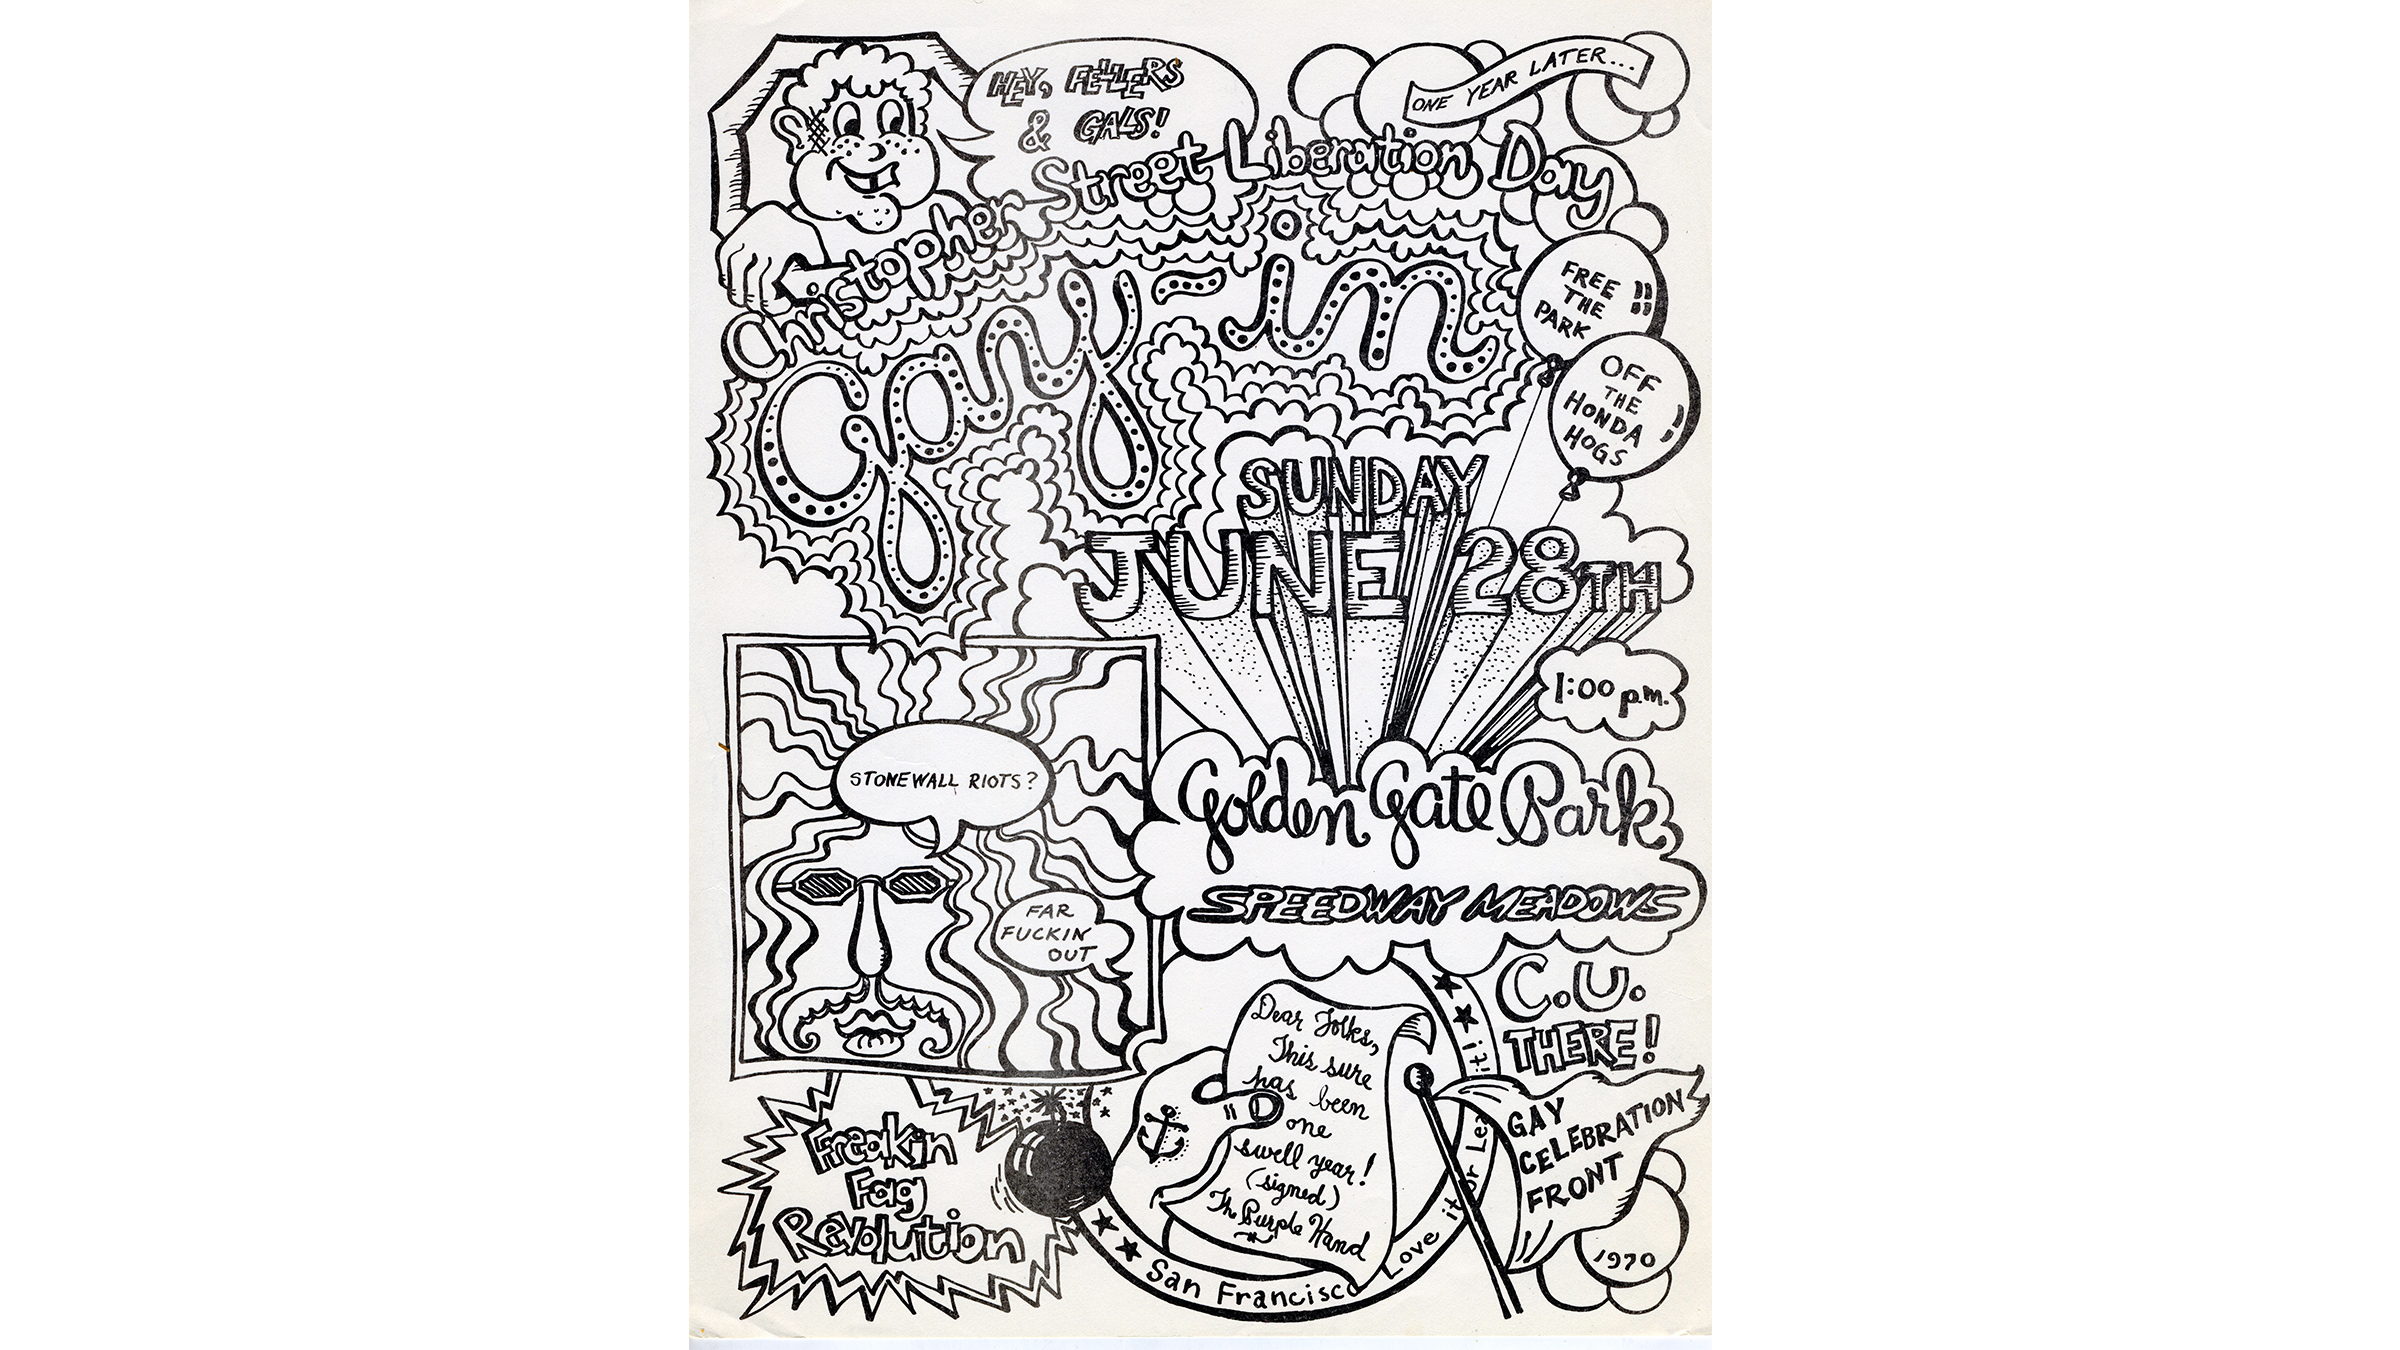 HEY, FELLERS
& GALS!
ONE YEAR LATER...
Christopher Street Liberation Day
Gay-in
FREE
THE
PARK !!
OFF
THE
HONDA
HOGS
SUNDAY
JUNE 28TH
1:00 p.m.
Golden Gate Park
SPEEDWAY MEADOWS
STONEWALL RIOTS?
FAR
FUCKIN'
OUT
C.U.
THERE!
Dear Folks,
This sure
has been
one
swell year!
(signed)
The Purple Hand
Freakin
Fag
Revolution
San Francisco
Love it or Lea it!
GAY
CELEBRATION
FRONT
1970